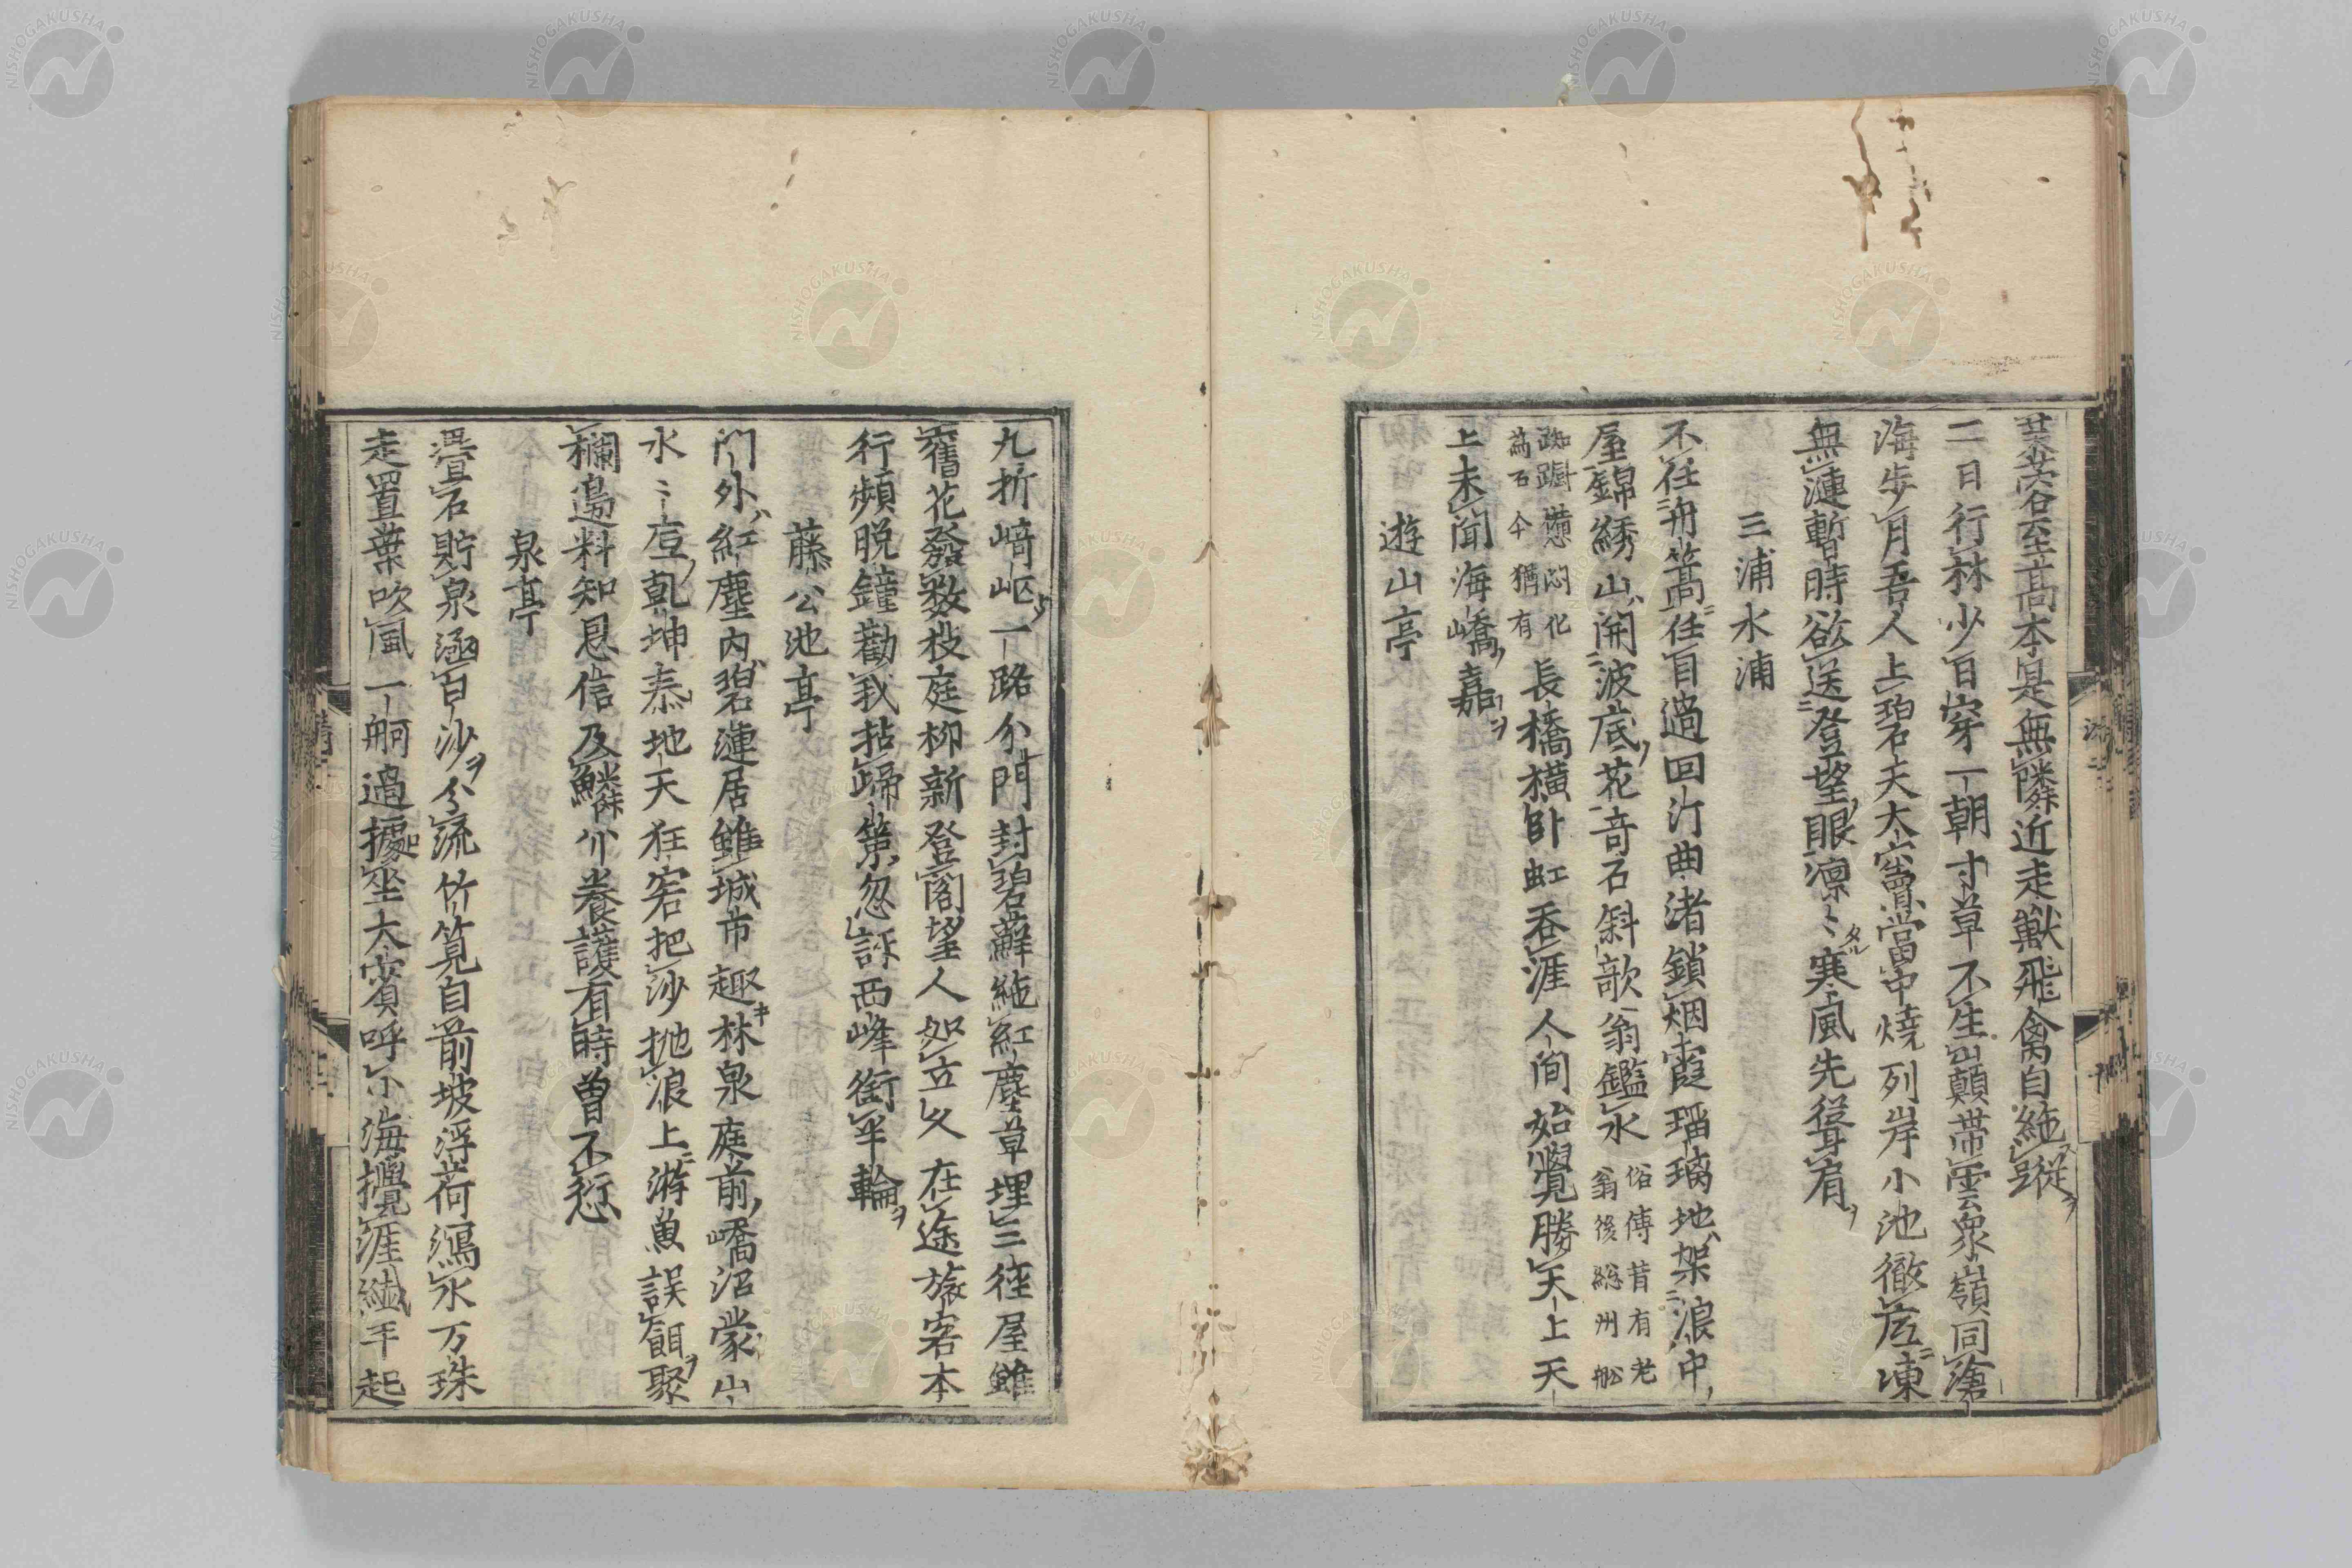 芙蓉至髙本是無隣近走獣飛禽自絶蹤
二日行林少白穿一朝寸草不生巓帯雲衆嶺同滄
海歩月吾人上碧天大竇當中焼列岸小池徹底凍
無漣暫時欲送登望眼凛〻寒風先聳肩
三浦水浦
不任舟篙任目過回汀曲渚鎖烟霞瑠璃地架浪中
屋錦綉山開波底花竒石斜歌翁鑑水
俗傳昔有老
翁後総州舩
踟蹰憊悶化
為石今猶有
長橋横卧虹呑涯人間始覺勝天上天
上未聞海嶠嘉
遊山亭
九折﨑岖一路分門封碧蘚絶紅塵草埋三径屋雖
舊花發数枝庭柳新登閣望人如立久在途旅客本
行頻脱鐘勸我拈歸策忽訝西峰銜半輪
藤公池亭
门外紅塵内碧漣居雖城市趣林泉庭前嶠沼蒙山
水〻壺乾坤泰地天狂客把沙抛浪上游魚誤餌聚
欄邉料知恩信及鱗介養護有時曽不愆
泉亭
畳石貯泉涵白沙分流竹筧自前坡浮荷瀉水万珠
走置葉吹風一舸過據坐大賓呼小海攪涯纎手起